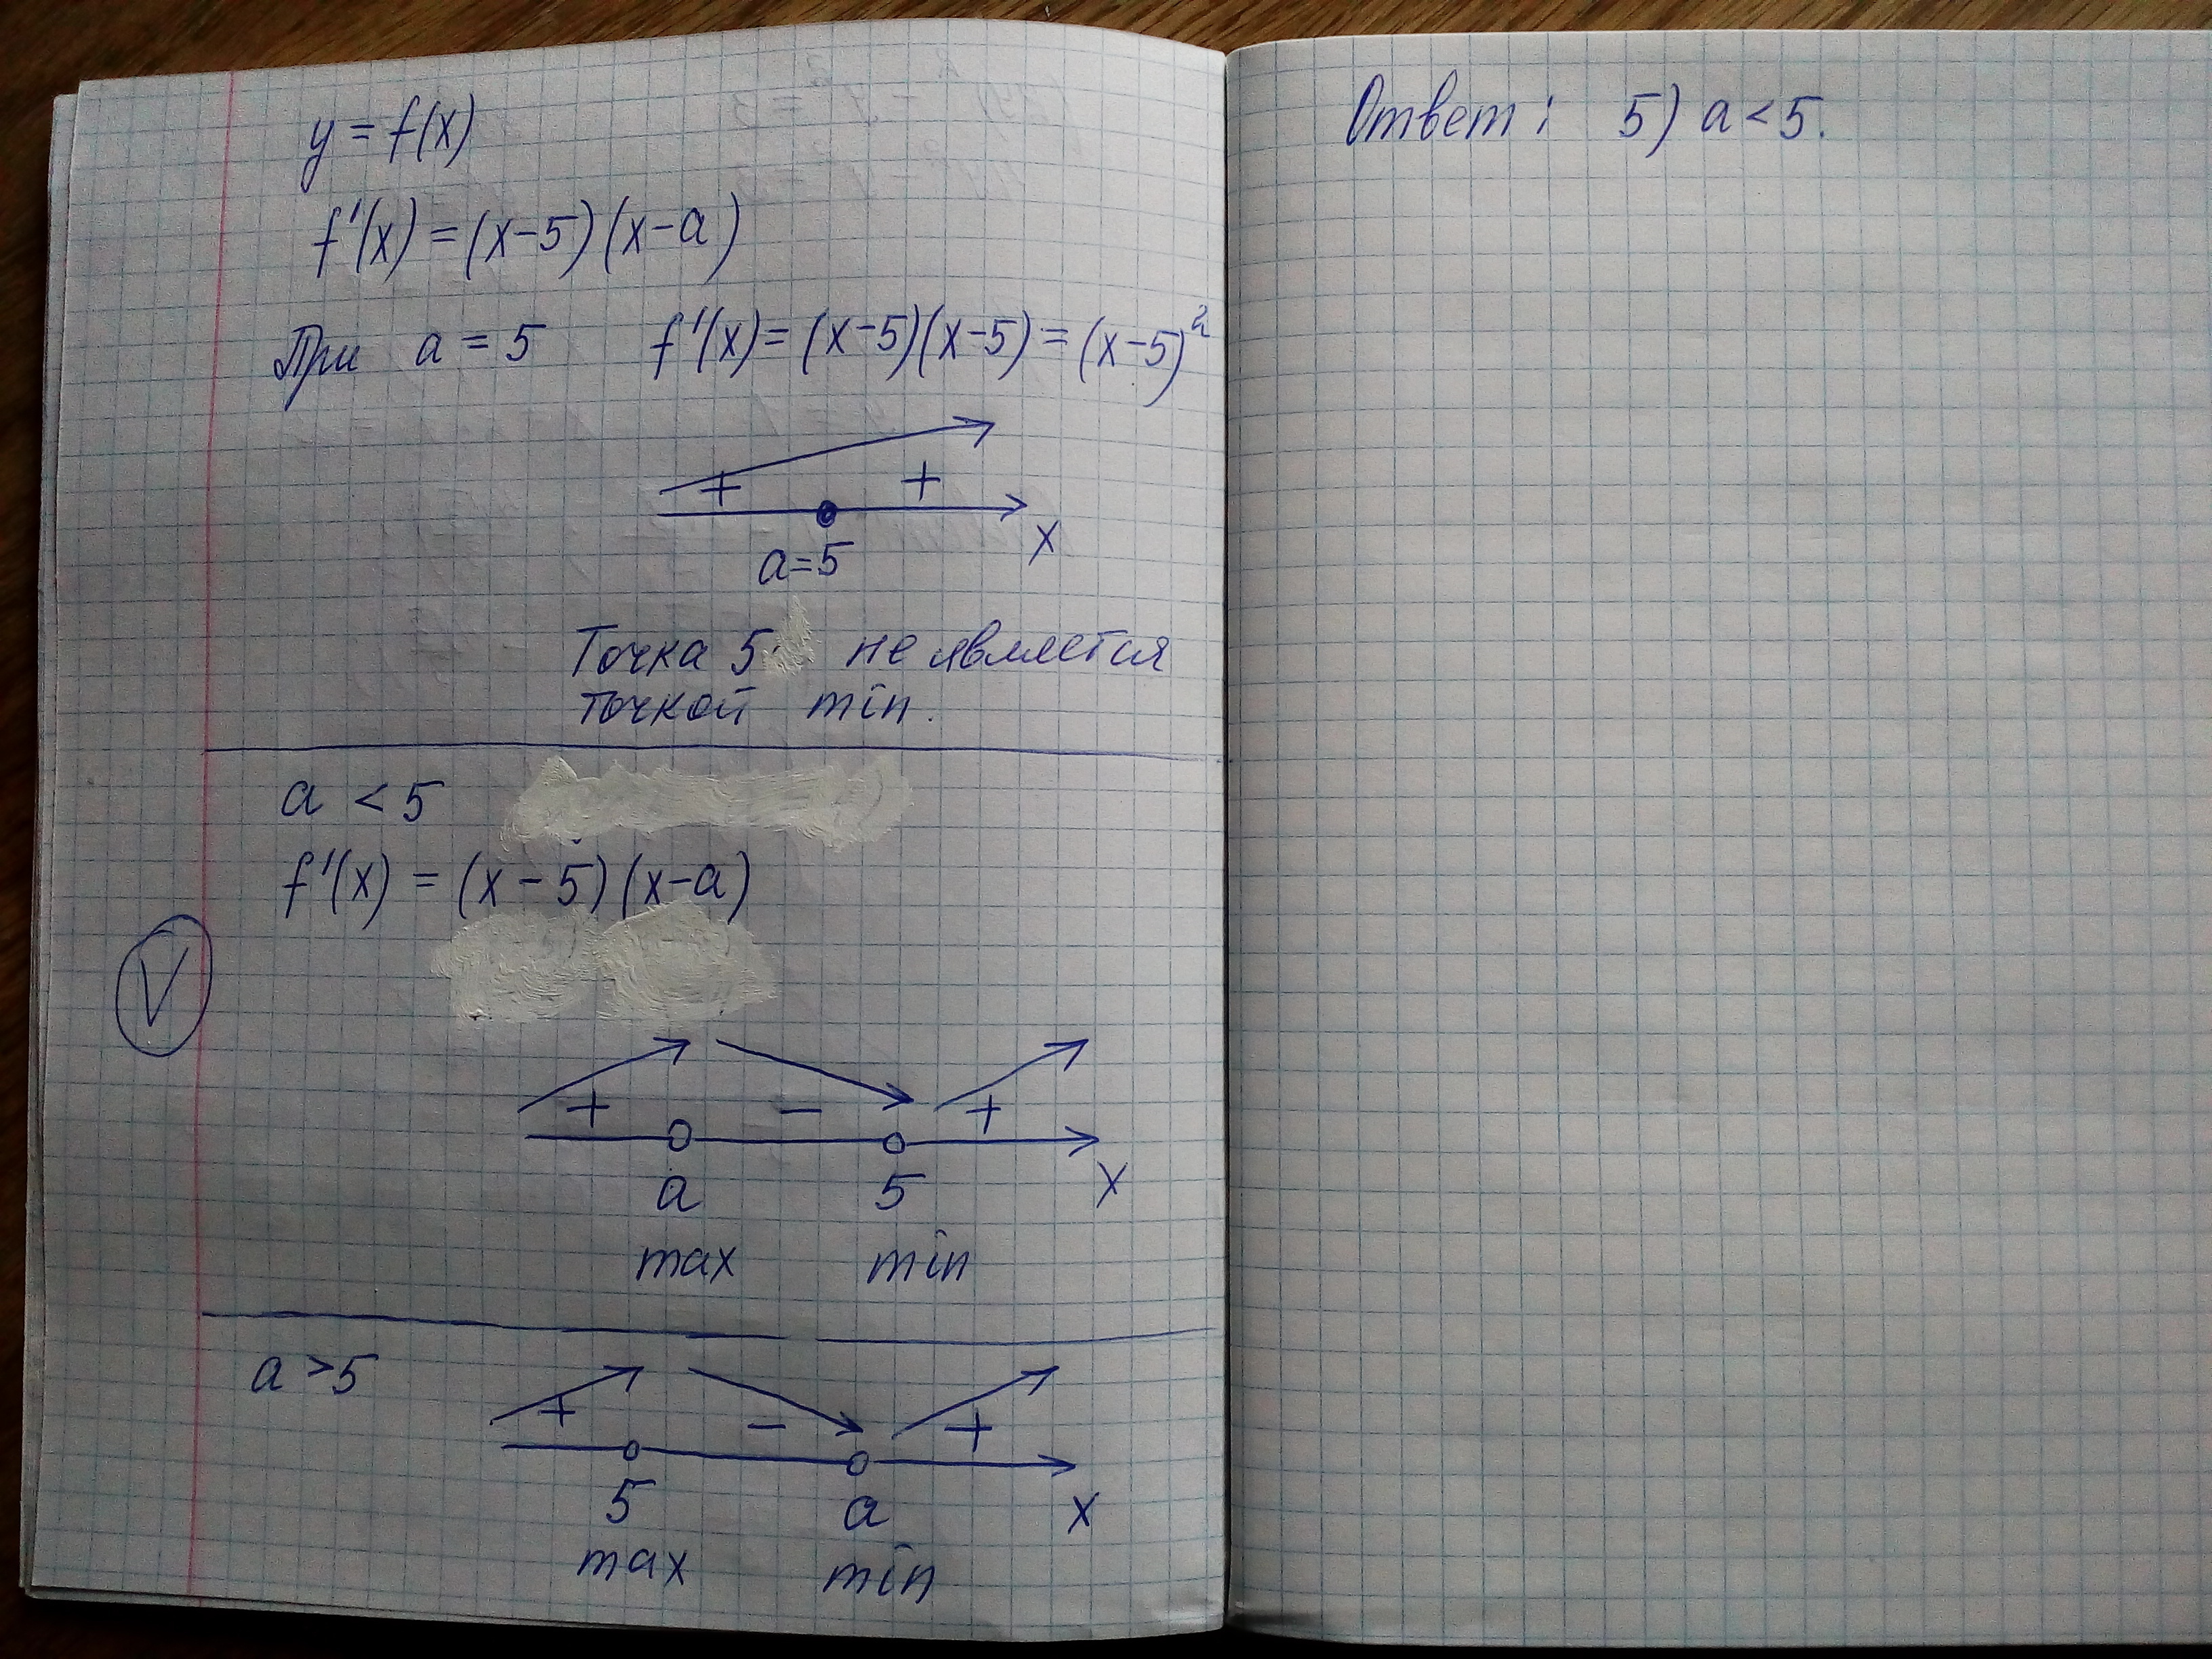 y = f(x)
f'(x) = (x-5)(x-a)
При a = 5 f'(x) = (x-5)(x-5) = (x-5)²
+ +
x
a=5
Точка 5 не является
точкой min.
a < 5
f'(x) = (x-5)(x-a)
V
+ − +
a 5 x
max min
a > 5
+ − +
5 a x
max min
Ответ: 5) a < 5.